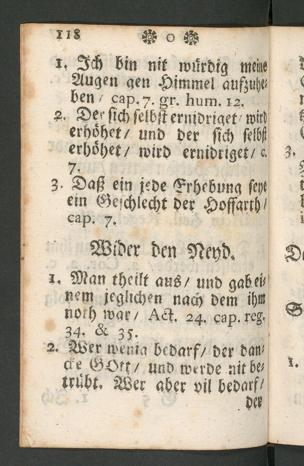 118 ❀ o ❀
1. Ich bin nit würdig meine
Augen gen Himmel aufzuhe-
ben / cap. 7. gr. hum. 12.
2. Der sich selbst ernidriget / wird
erhöhet / und der sich selbst
erhöhet / wird ernidriget / c.
7.
3. Daß ein jede Erhebung seye
ein Geschlecht der Hoffarth /
cap. 7.
Wider den Neyd.
1. Man theilt aus / und gab ei-
nem jeglichen nach dem ihm
noth war / Act. 24. cap. reg.
34. & 35.
2. Wer wenig bedarf / der dan-
cke GOtt / und werde nit be-
trübt. Wer aber vil bedarf /
der